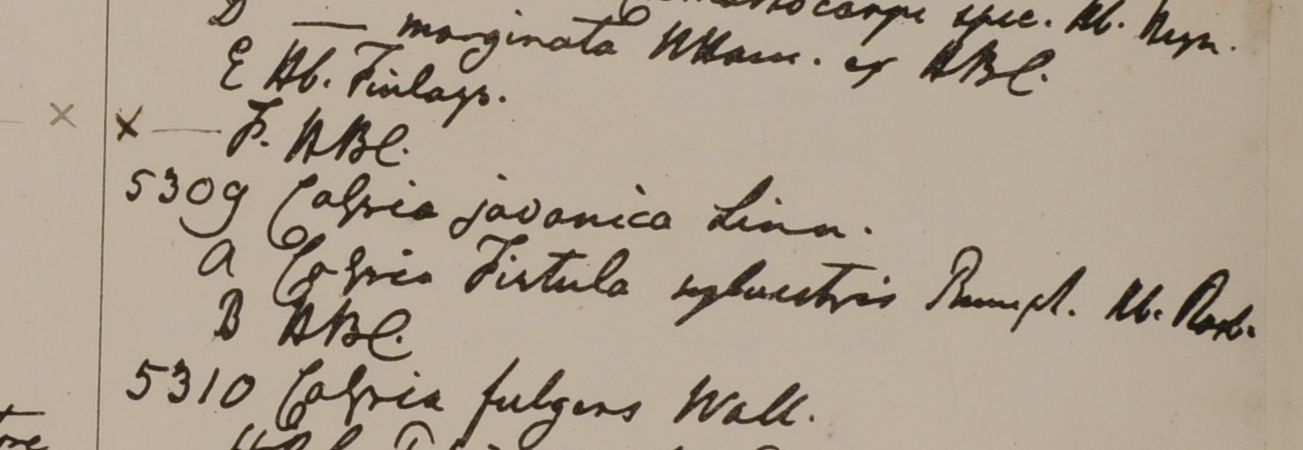 D — marginata WHam. ex HBC.
spec. Hb. Heyn.
E Hb. Finlays.
× × — F. HBC.
5309 Caſsia javanica Linn.
a Caſsia Fistula sylvestris Rumph. Hb. Roxb.
B HBC.
5310 Caſsia fulgens Wall.